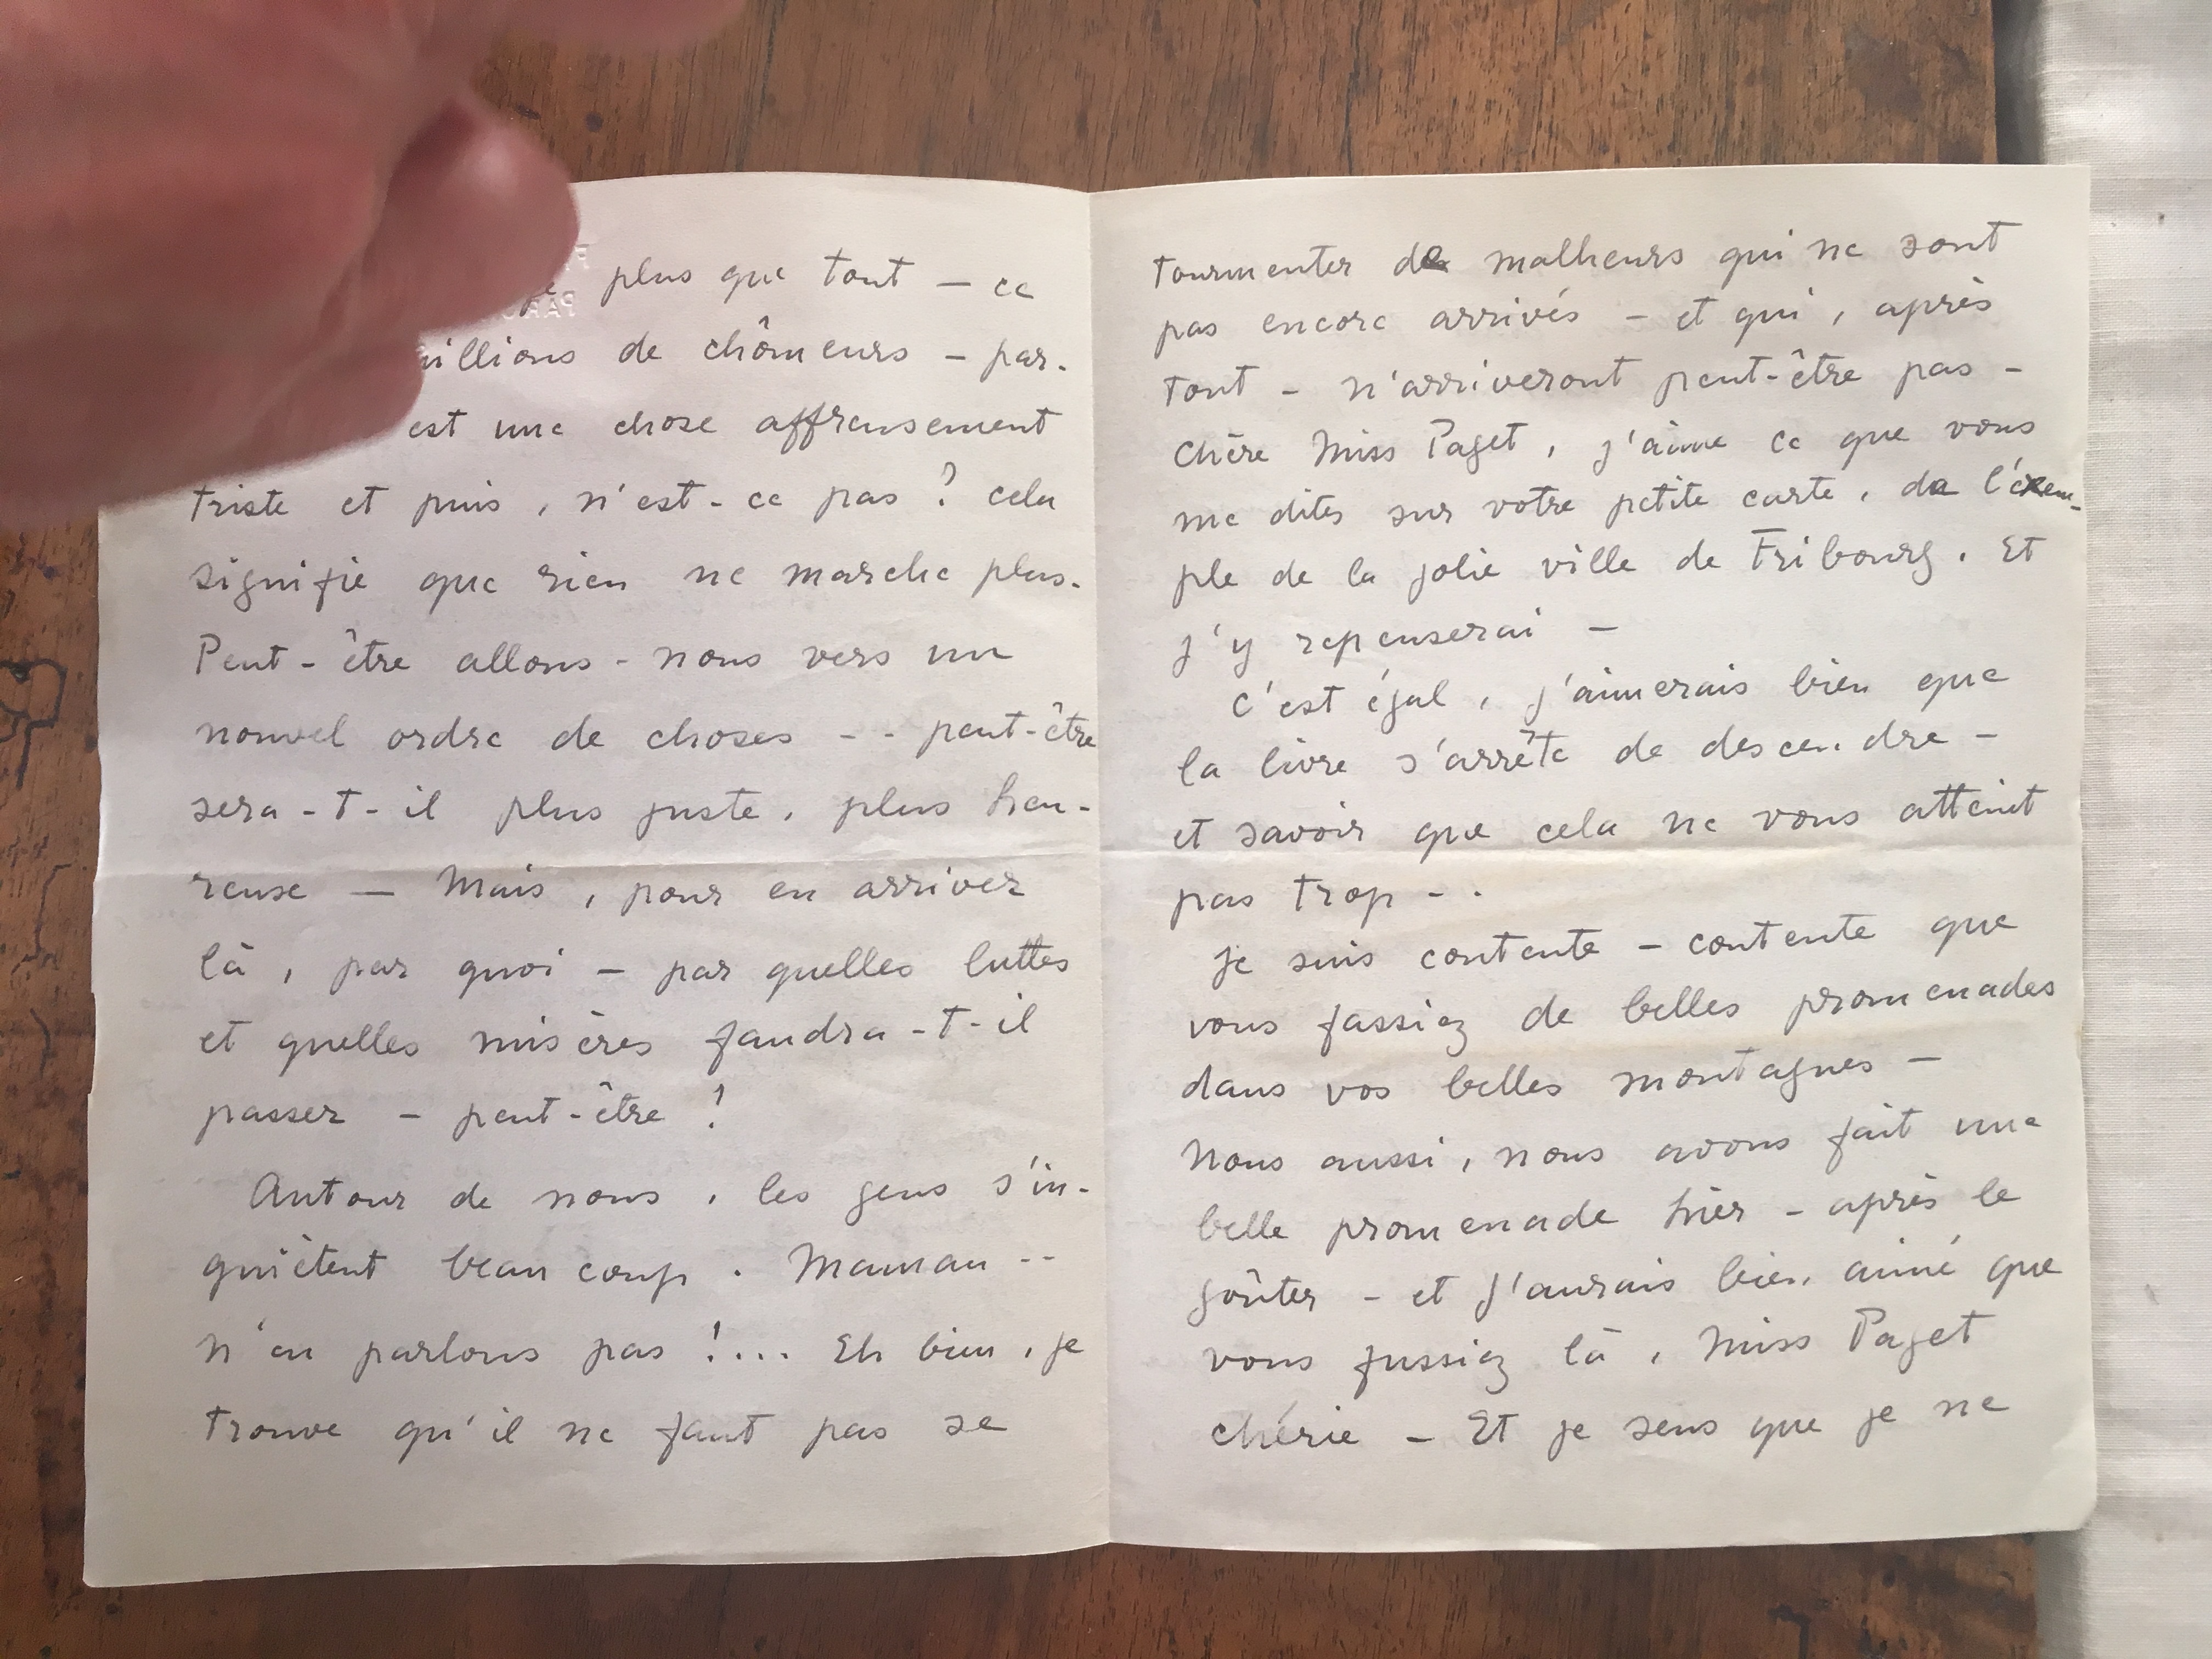 plus que tout — ce
millions de chômeurs — par-
est une chose affreusement
triste et puis, n'est-ce pas ? cela
signifie que rien ne marche plus.
Peut-être allons-nous vers un
nouvel ordre de choses -- peut-être
sera-t-il plus juste, plus heu-
reuse — Mais, pour en arriver
là, par quoi — par quelles luttes
et quelles misères faudra-t-il
passer — peut-être !
Autour de nous, les gens s'in-
quiètent beaucoup. Maman --
n'en parlons pas !... Eh bien, je
trouve qu'il ne faut pas se
tourmenter de malheurs qui ne sont
pas encore arrivés — et qui, après
tout — n'arriveront peut-être pas —
Chère Miss Paget, j'aime ce que vous
me dites sur votre petite carte, de l'exem-
ple de la jolie ville de Fribourg. Et
j'y repenserai —
C'est égal, j'aimerais bien que
la livre s'arrête de descendre —
et savoir que cela ne vous atteint
pas trop --
Je suis contente — contente que
vous fassiez de belles promenades
dans vos belles montagnes —
Nous aussi, nous avons fait une
belle promenade hier — après le
goûter — et j'aurais bien aimé que
vous fussiez là, Miss Paget
chérie — Et je sens que je ne